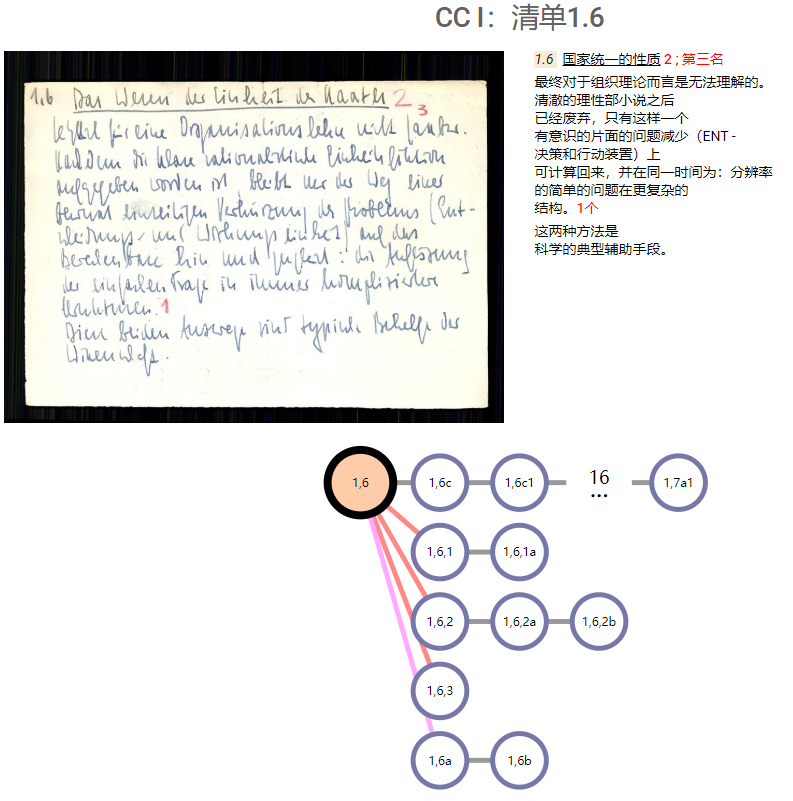 CC I：清单1.6
1,6 Das Wesen der Einheit des Staates 2 3
letztlich für eine Organisationslehre nicht fassbar.
Nachdem die klare rationalistische Einheitsfiktion
aufgegeben worden ist, bleibt nur der Weg einer
bewusst einseitigen Verkürzung des Problems (Ent-
scheidungs- und Wirkungseinheit) auf das
Berechenbare hin und zugleich: die Auflösung
der einfachen Frage in immer kompliziertere
Strukturen. 1
Diese beiden Auswege sind typische Behelfe der
Wissenschaft.
1.6 国家统一的性质 2 ; 第三名
最终对于组织理论而言是无法理解的。
清澈的理性部小说之后
已经废弃，只有这样一个
有意识的片面的问题减少（ENT -
决策和行动装置）上
可计算回来，并在同一时间为：分辨率
的简单的问题在更复杂的
结构。1个
这两种方法是
科学的典型辅助手段。
1,6 1,6c 1,6c1 16 ... 1,7a1
1,6,1 1,6,1a
1,6,2 1,6,2a 1,6,2b
1,6,3
1,6a 1,6b